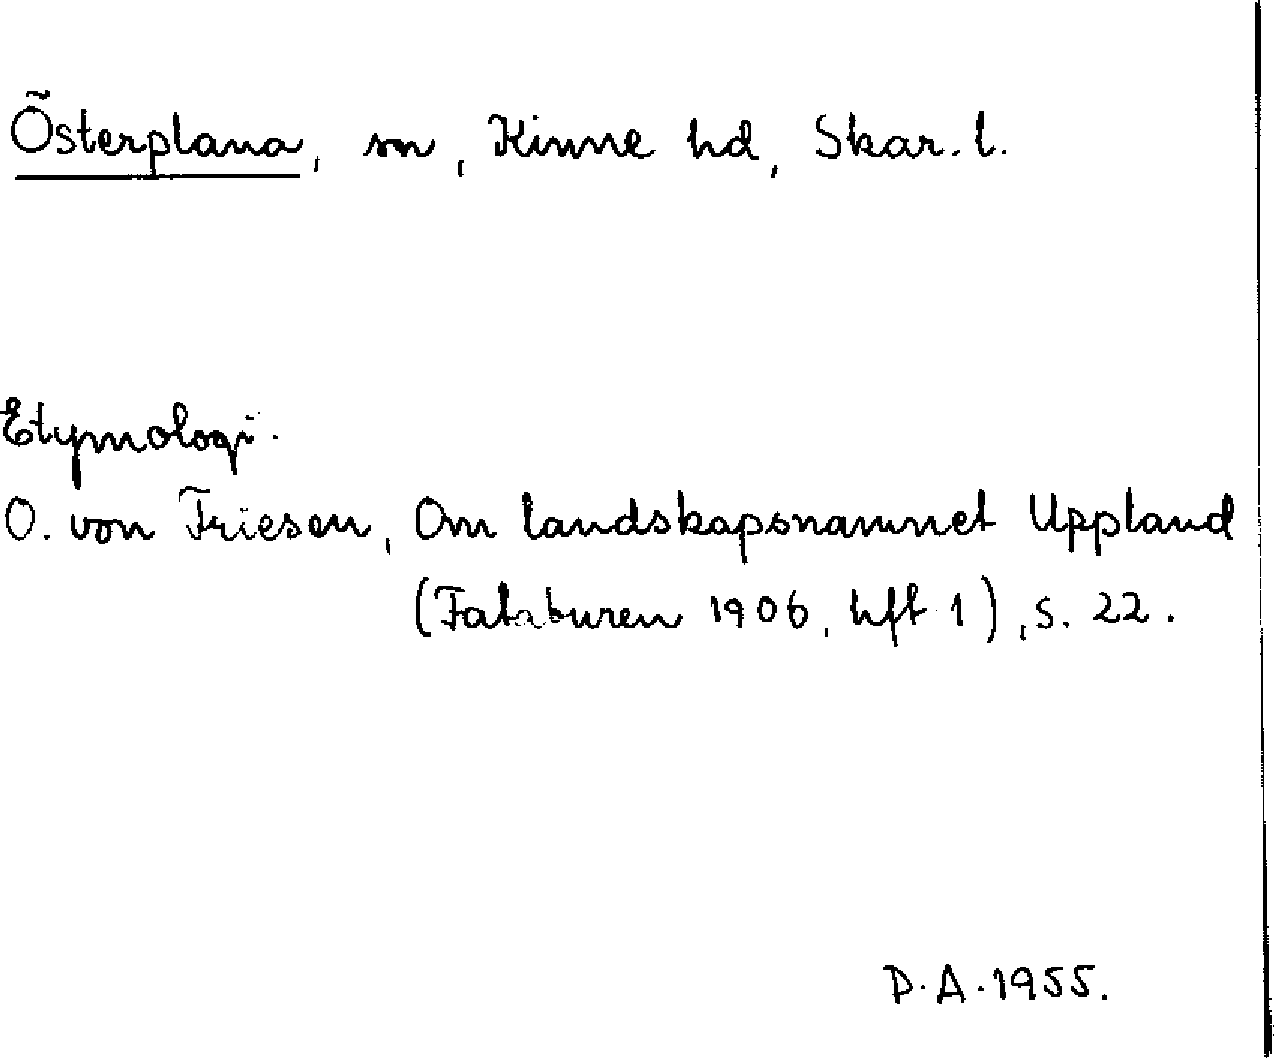 Österplana, sn, Kinne hd, Skar. l.
Etymologi.
O. von Friesen, Om landskapsnamnet Uppland
(Fataburen 1906, hft 1), s. 22.
D. A. 1955.